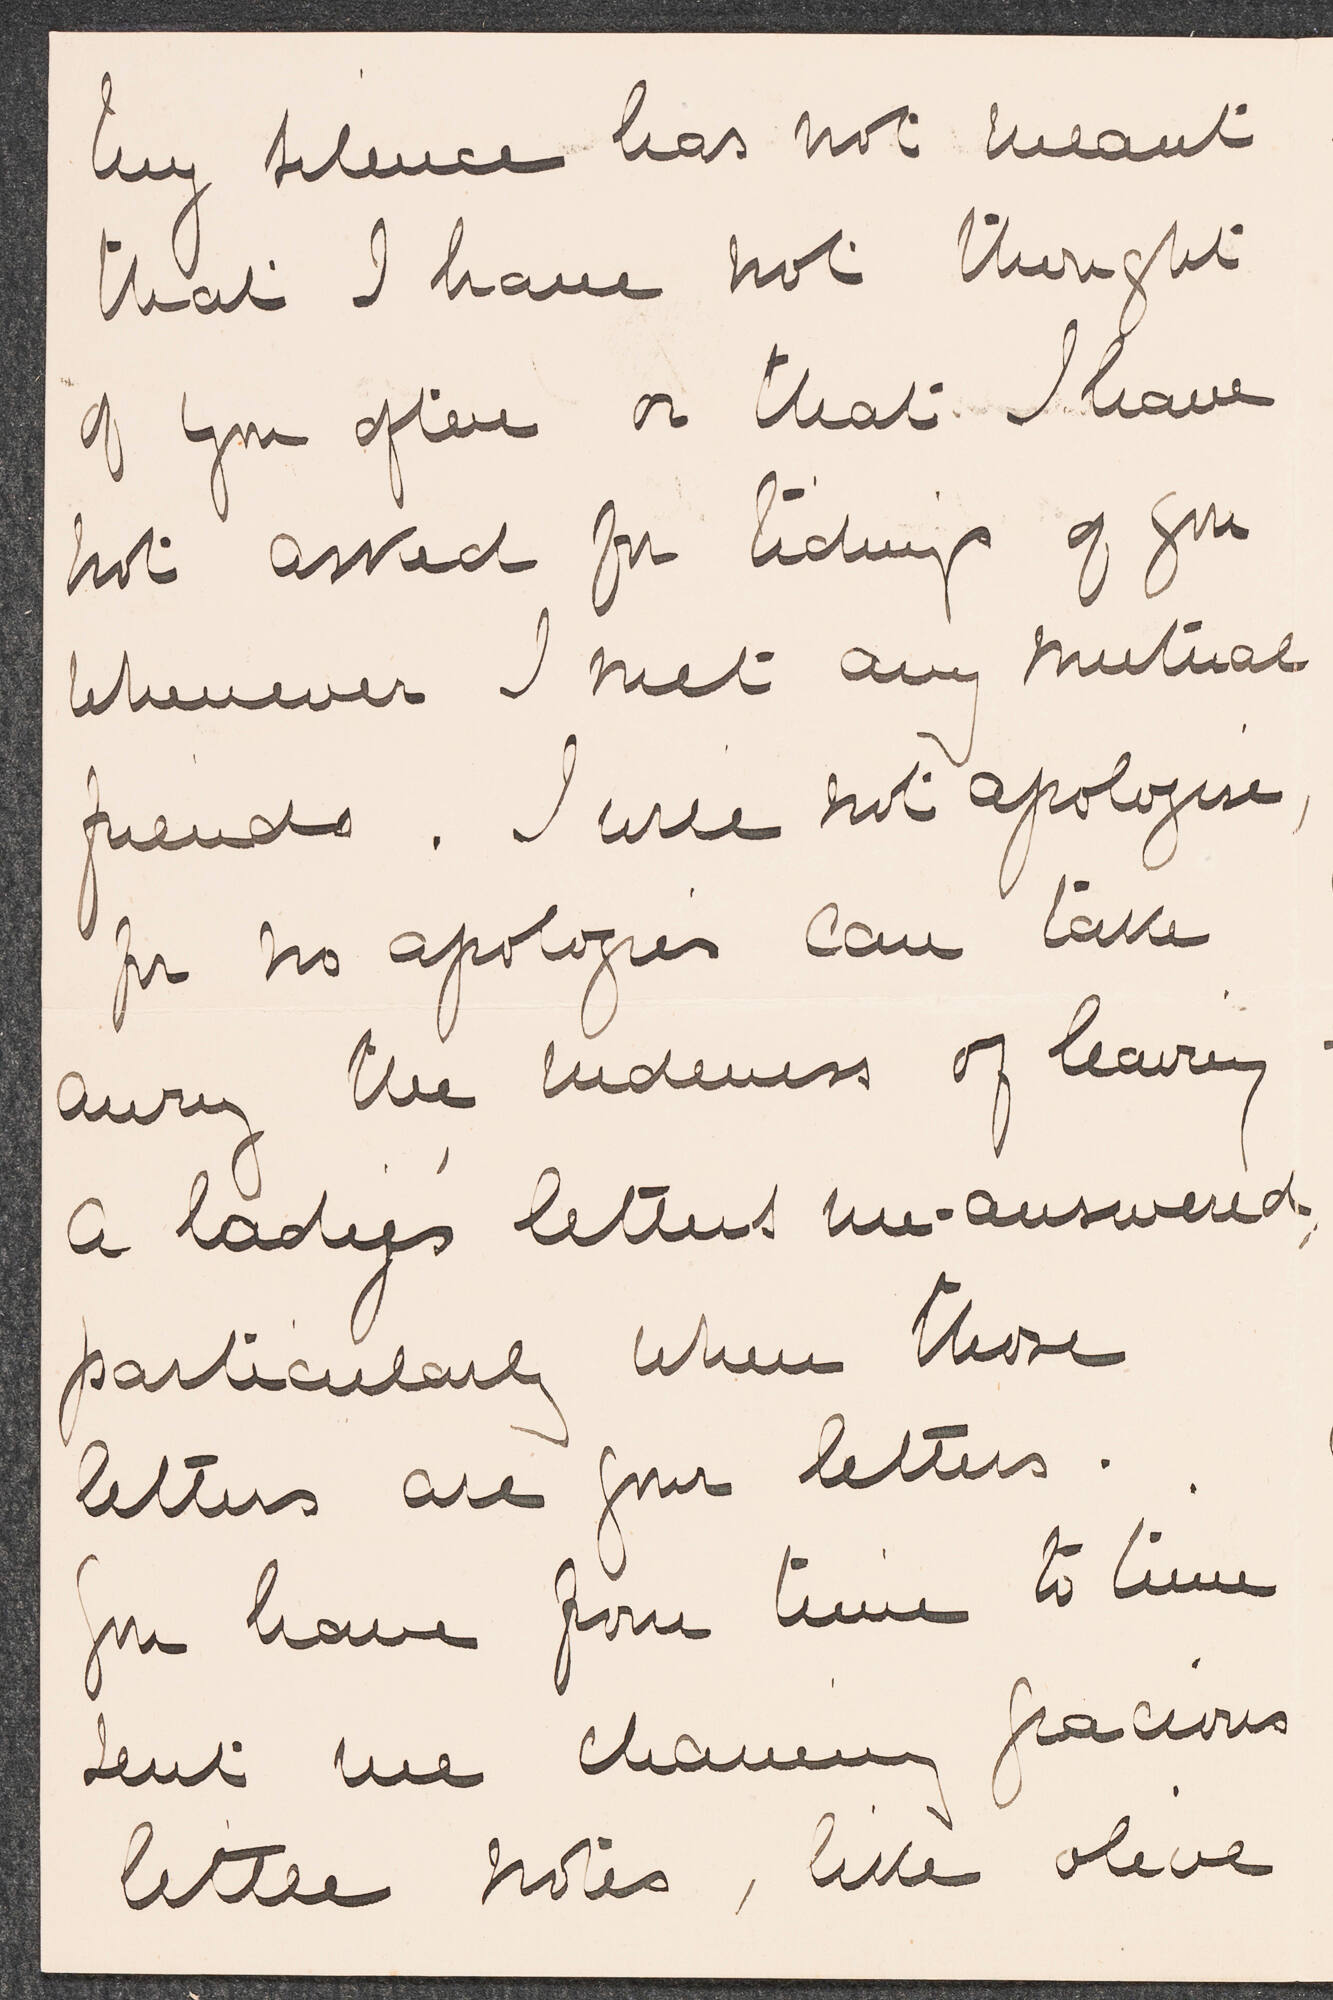 my silence has not meant
that I have not thought
of you often or that I have
not asked for tidings of you
whenever I met any mutual
friends. I will not apologise,
for no apologies can take
away the rudeness of leaving
a ladies' letters un-answered,
particularly when those
letters are your letters.
You have from time to time
sent me charming gracious
little notes, like olive